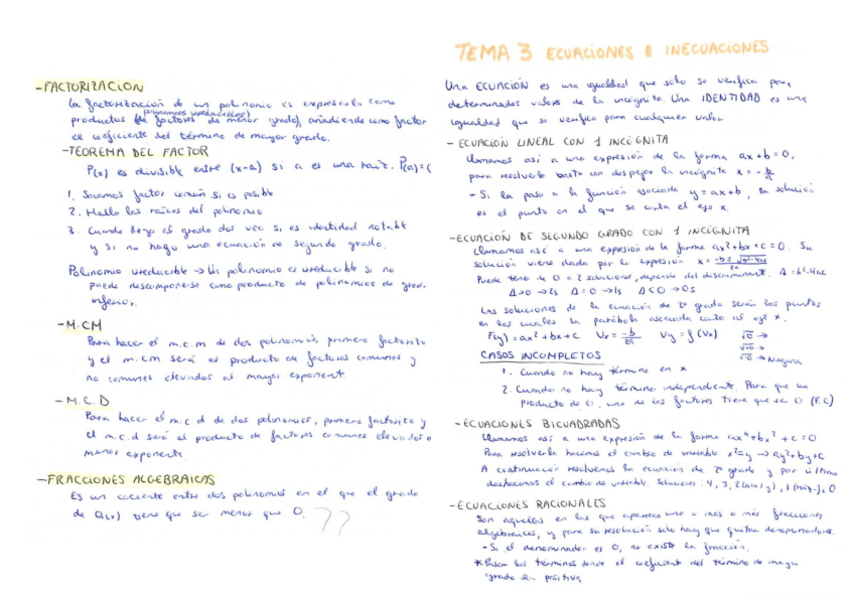 - FACTORIZACIÓN
La factorización de un polinomio es expresarlo como
polinomios irreducibles)
productos (de factores de menor grado), añadiendo como factor
el coeficiente del término de mayor grado.
- TEOREMA DEL FACTOR
P(x) es divisible entre (x-a) si a es una raíz. P(a)=(
1. Sacamos factor común si es posible
2. Hallo las raíces del polinomio
3. Cuando llego al grado dos veo si es identidad notable
y si no hago una ecuación de segundo grado.
Polinomio irreducible → Un polinomio es irreducible si no
puede descomponerse como producto de polinomios de grado
inferior.
- M.CM
Para hacer el m.c.m de dos polinomios, primero factorizo
y el m.cm será el producto de factores comunes y
no comunes elevados al mayor exponent.
- M.C.D
Para hacer el m.c.d de dos polinomios, primero factorizo y
el m.c.d será el producto de factores comunes elevados a
menor exponente.
- FRACCIONES ALGEBRAICAS
Es un cociente entre dos polinomios en el que el grado
de Q(x) tiene que ser menor que 0. ??
TEMA 3 ECUACIONES E INECUACIONES
Una ECUACIÓN es una igualdad que solo se verifica para
determinados valores de la incógnita. Una IDENTIDAD es una
igualdad que se verifica para cualquier valor.
- ECUACIÓN LINEAL CON 1 INCÓGNITA
Llamamos así a una expresión de la forma ax+b=0,
para resolverla basta con despejar la incógnita x = -b/a
- Si la paso a la función asociada y=ax+b, la solución
es el punto en el que se corta el eje x.
- ECUACIÓN DE SEGUNDO GRADO CON 1 INCÓGNITA
Llamamos así a una expresión de la forma ax²+bx+c=0. Su
solución viene dada por la expresión x = -b±√b²-4ac/2a
Puede tener de 0 a 2 soluciones, depende del discriminante. Δ=b²-4ac
Δ>0 → 2s Δ=0 → 1s Δ<0 → 0s
Las soluciones de la ecuación de 2º grado serán los puntos
en los cuales la parábola asociada corta al eje x.
F(x)=ax²+bx+c Vx = -b/2a Vy = f(Vx)
Ninguna
CASOS INCOMPLETOS
1. Cuando no hay término en x
2. Cuando no hay término independente. Para que un
producto de 0, uno de los factores tiene que ser 0 (F.C)
- ECUACIONES BICUADRADAS
Llamamos así a una expresión de la forma ax⁴+bx²+c=0
Para resolverla hacemos el cambio de variable x²=y → ay²+by+c
A continuación resolvemos la ecuación de 2º grado y por último
deshacemos el cambio de variable. Soluciones: 4, 3, 2 , 1 , 0
- ECUACIONES RACIONALES
Son aquellas en las que aparecen una o más fracciones
algebraicas, y para su resolución solo hay que quitar denominadores.
- Si el denominador es 0, no existe la fracción.
* Pasar los términos donde el coeficient del término de mayor
grado sea positivo